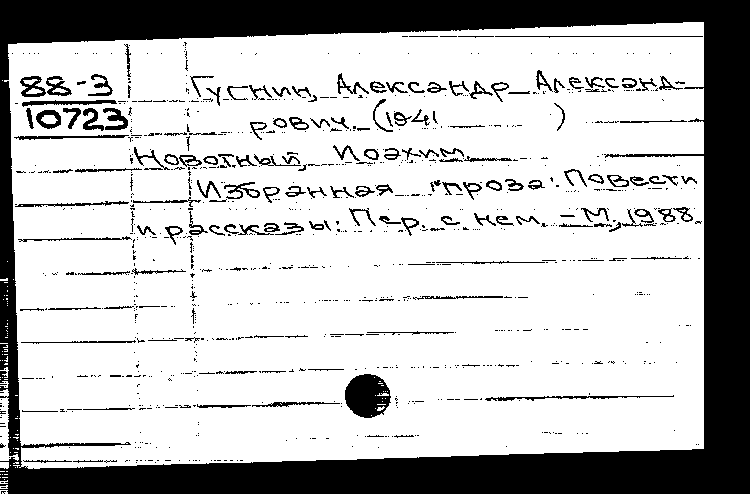 88-3
10723
Гугнин, Александр Александ-
рович. (1941 )
Новотный, Иоахим.
Избранная проза: Повести
и рассказы: Пер. с нем. - М., 1988.